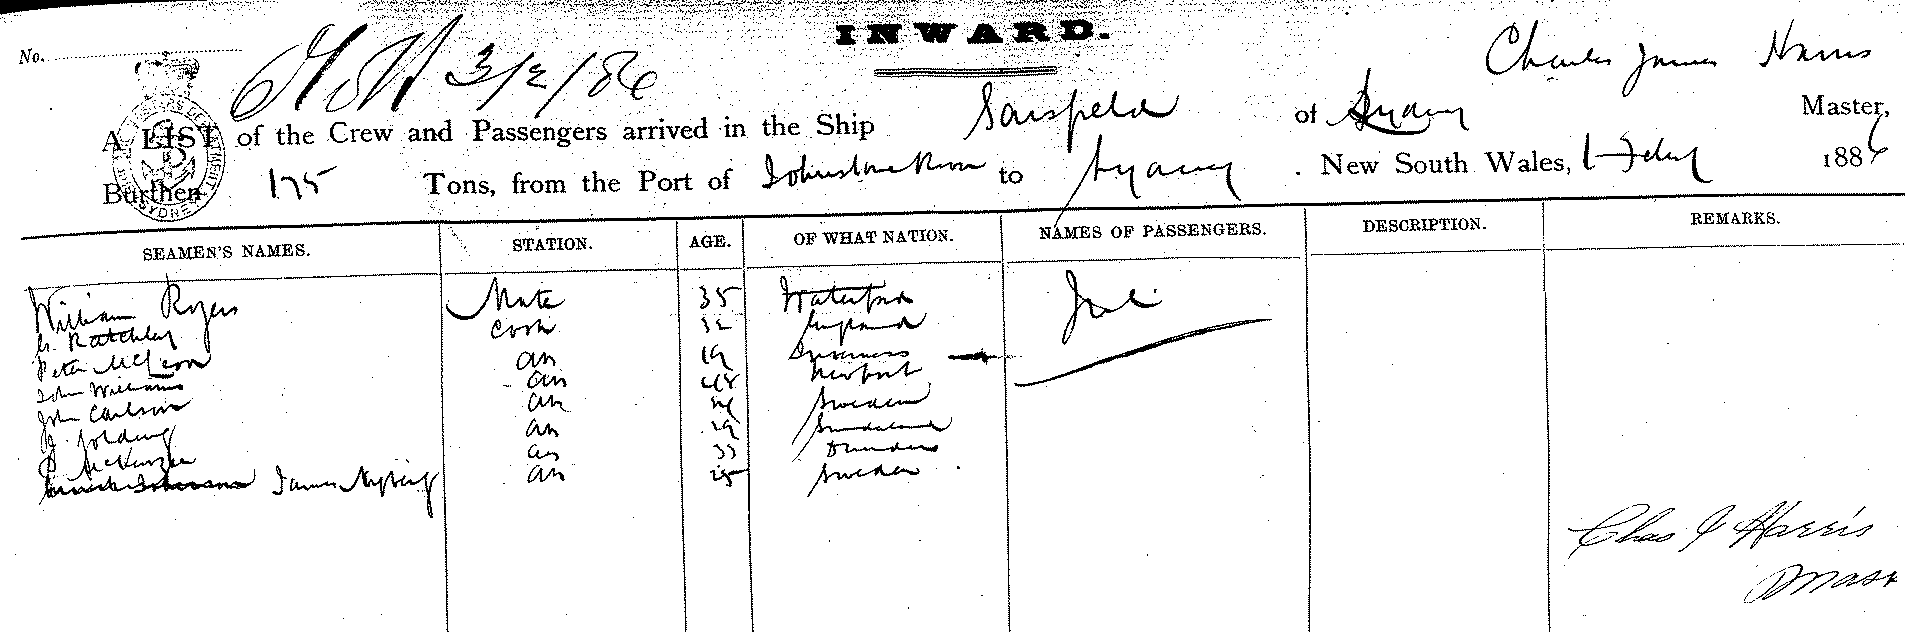 INWARD.
No.
3/2/86
Charles James Harris
A LIST of the Crew and Passengers arrived in the Ship of Sydney Master,
Burthen 175 Tons, from the Port of Johnstone River to Sydney . New South Wales, 1 Feby 1886
SEAMEN'S NAMES. STATION. AGE. OF WHAT NATION. NAMES OF PASSENGERS. DESCRIPTION. REMARKS.
William Rogers Mate 35 Waterford
Cook England
Peter McLeod AB 19 Inverness
John Williams AB 48 Newport
John Carlson AB Sweden
J. Golding AB 29 Sunderland
McKenzie AB 33 Dundee
James AB 25 Sweden
Chas J Harris
Mast